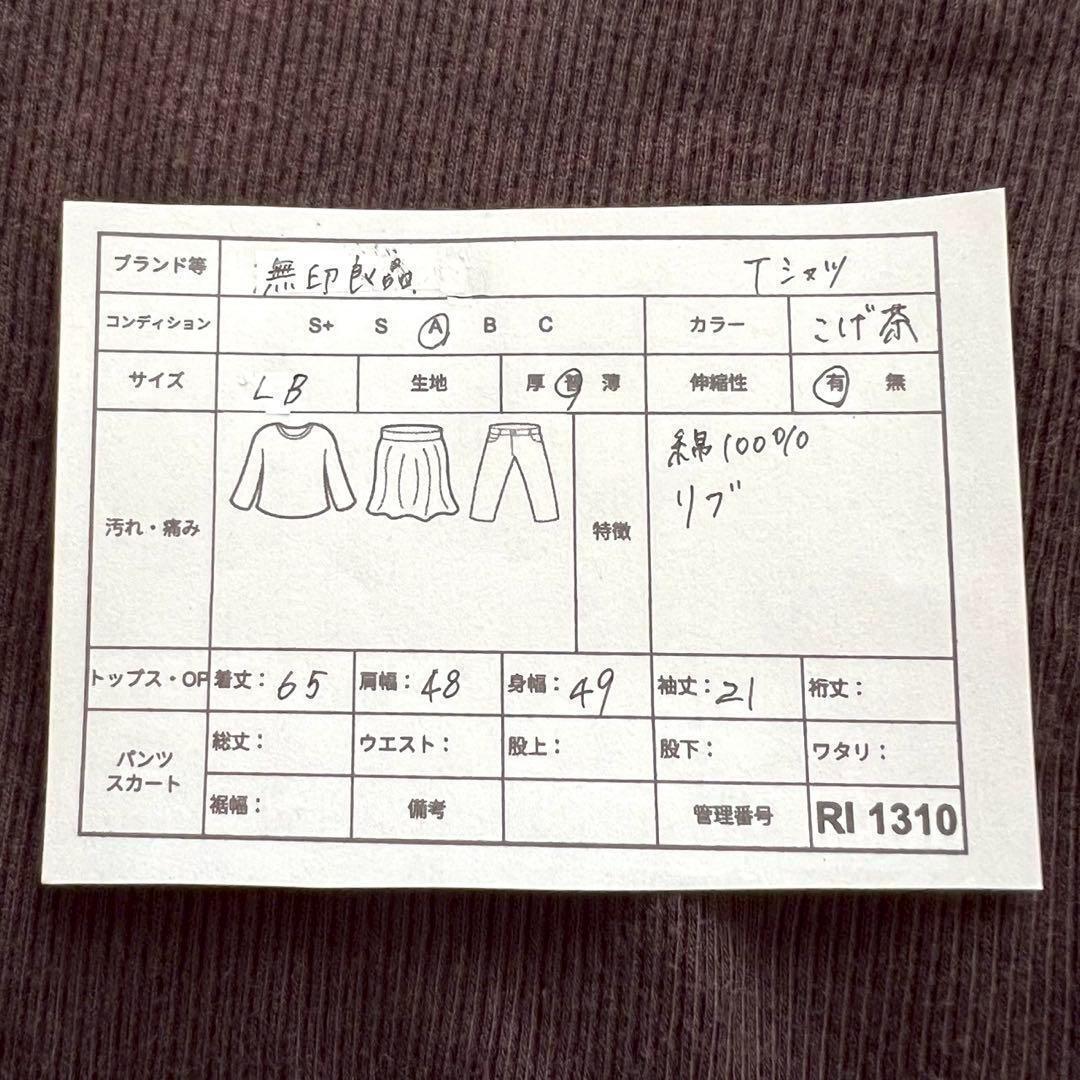 ブランド等 無印良品 Tシャツ
コンディション S+ S A B C カラー こげ茶
サイズ LB 生地 厚 普 薄 伸縮性 有 無
汚れ・痛み 特徴 綿100%
リブ
トップス・OP 着丈：65 肩幅：48 身幅：49 袖丈：21 裄丈：
パンツ
スカート
総丈： ウエスト： 股上： 股下： ワタリ：
裾幅： 備考 管理番号 RI 1310